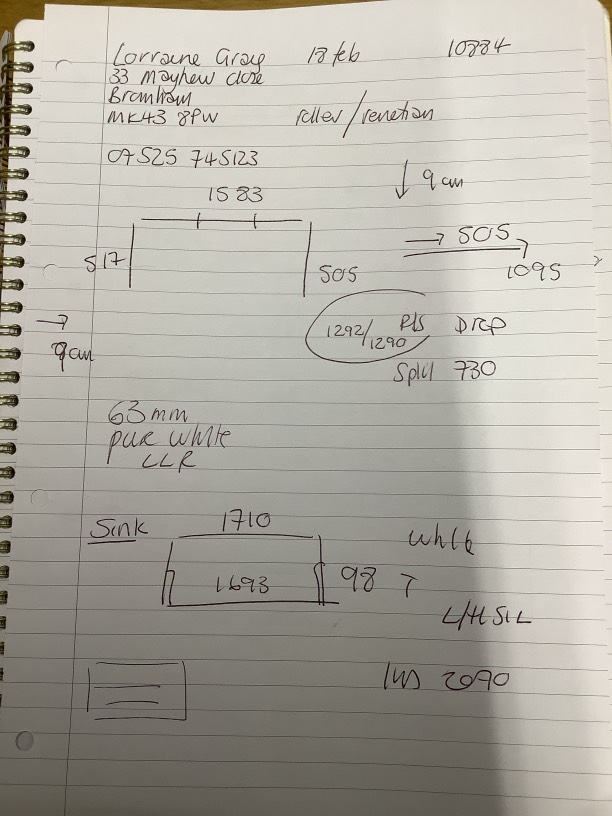 Lorraine Gray 18 feb 10884
33 Mayhew Close
Bromham
MK43 8PW roller/venetian
07525 745123
↓ 9cm
1583
→ 505
517
505
1095
→
9cm
1292/1290 Pls DROP
Split 730
63mm
pure white
LLR
Sink 1710
White
1693 98
L/H SIL
2090